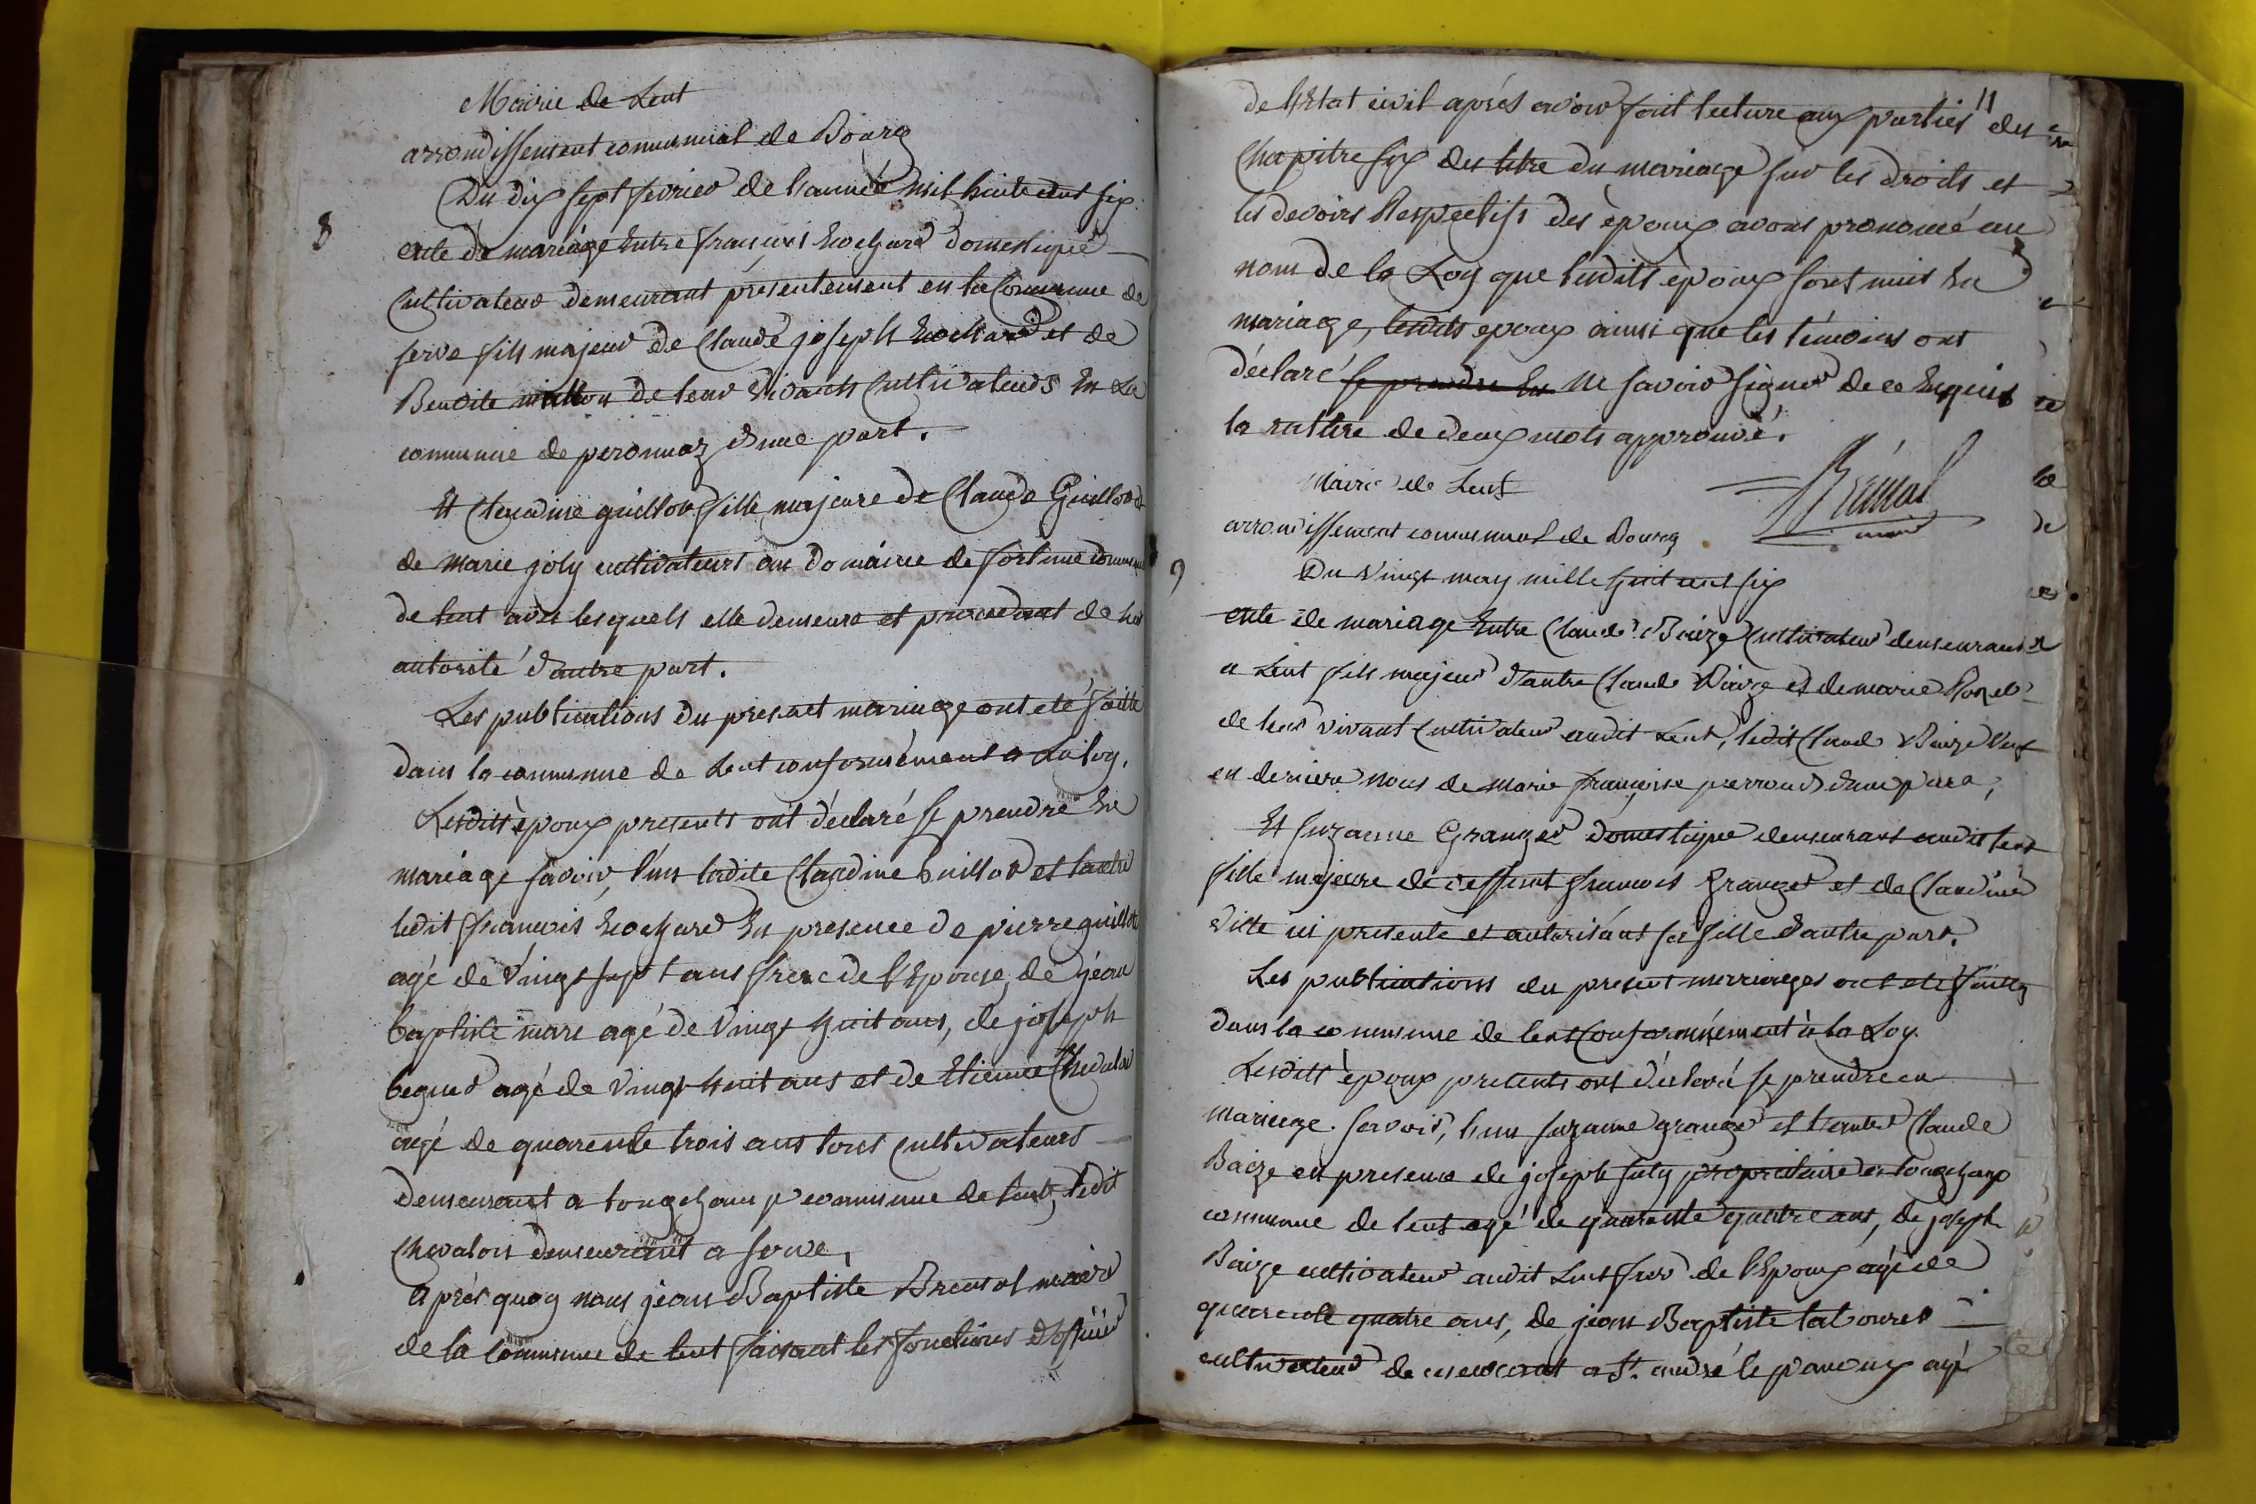 Mairie de Lent
arrondissement communal de Bourg
8
Du dix sept fevrier de l'année mil huit cent six
acte de mariage Entre françois Rochard domestique
Cultivateur demeurant présentement en la Commune de
serve fils majeur de Claude joseph Rochard et de
Benoite de leur vivants Cultivateurs En La
commune de peronnaz d'une part.
Et Claudine guillot fille majeure de Claude Guillot et
de marie joly cultivateurs au domaine de fortune commune
de lent avec lesquels elle demeure et procedant de leur
autorité d'autre part.
Les publications du present mariage ont eté faitte
dans la commune de Lent conformément a La loy.
Lesdits èpoux presents ont déclaré se prendre En
mariage savoir, l'un ladite Claudine Guillot et lautre
ledit francois Rochard En presence de pierre guillot
agé de vingt sept ans frere de l'Epouse, de jean
baptiste mare agé de vingt huit ans, de joseph
agé de vingt huit ans et de Etienne Chevalon
agé de quarente trois ans tous Cultivateurs
demeurant a longchamp commune de lent, ledit
Chevalon demeurant a serve,
après quoy nous jean Baptiste mairè
de la commune de lent faisant les fonctions d'officier
11
de l'Etat civil après avoir fait lecture aux parties du
Chapitre six du titre du mariage sur les droits et
les devoirs Respectifs des èpoux avons prononcé au
nom de la Loy que lesdits èpoux sont unis En
mariage, lesdits epoux ainsi que les témoins ont
déclaré se prendre En ne savoir signer de ce Enquis
la rature de deux mots approuvé.
Mairie de Lent
arrondissement communal de Bourg
9
Du vingt may mille huit cent six
acte de mariage Entre Claude Baize Cultivateur demeurant
a Lent fils majeur d'autre Claude Baize et de marie
de leur vivant Cultivateur audit Lent, ledit Claude Baize veuf
en derniere nous de marie françoise perroud d'une part,
Et suzanne Granger domestique demeurant audit lent
fille majeure de deffunt francois Granger et de Claudine
ville ici presente et autorisant sa fille d'autre part.
Les publications du present marriages ont eté faittes
dans la commune de lent Conformémement à la Loy.
Lesdits èpoux presents ont déclaré se prendre en
mariage. savoir, l'un suzanne granger et l'autre Claude
Baize en presence de joseph propriétaire en longchamp
commune de lent agé de quarente quatre ans, de joseph
Baize cultivateur audit Lent frere de l'Epoux agé de
quarente quatre ans, de jean Baptiste
cultivateur demeurant a St. andré le panoux agé